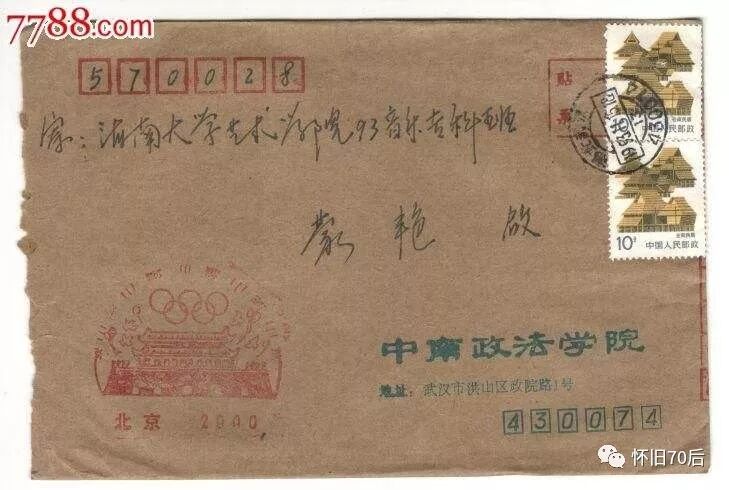 7788.com
570028
贴
票
寄：海南大学艺术学院93音乐专科班
严艳 启
云南民居
中国人民邮政
云南民居
10分
中国人民邮政
北京 2000
中南政法学院
地址：武汉市洪山区政院路1号
430074
怀旧70后